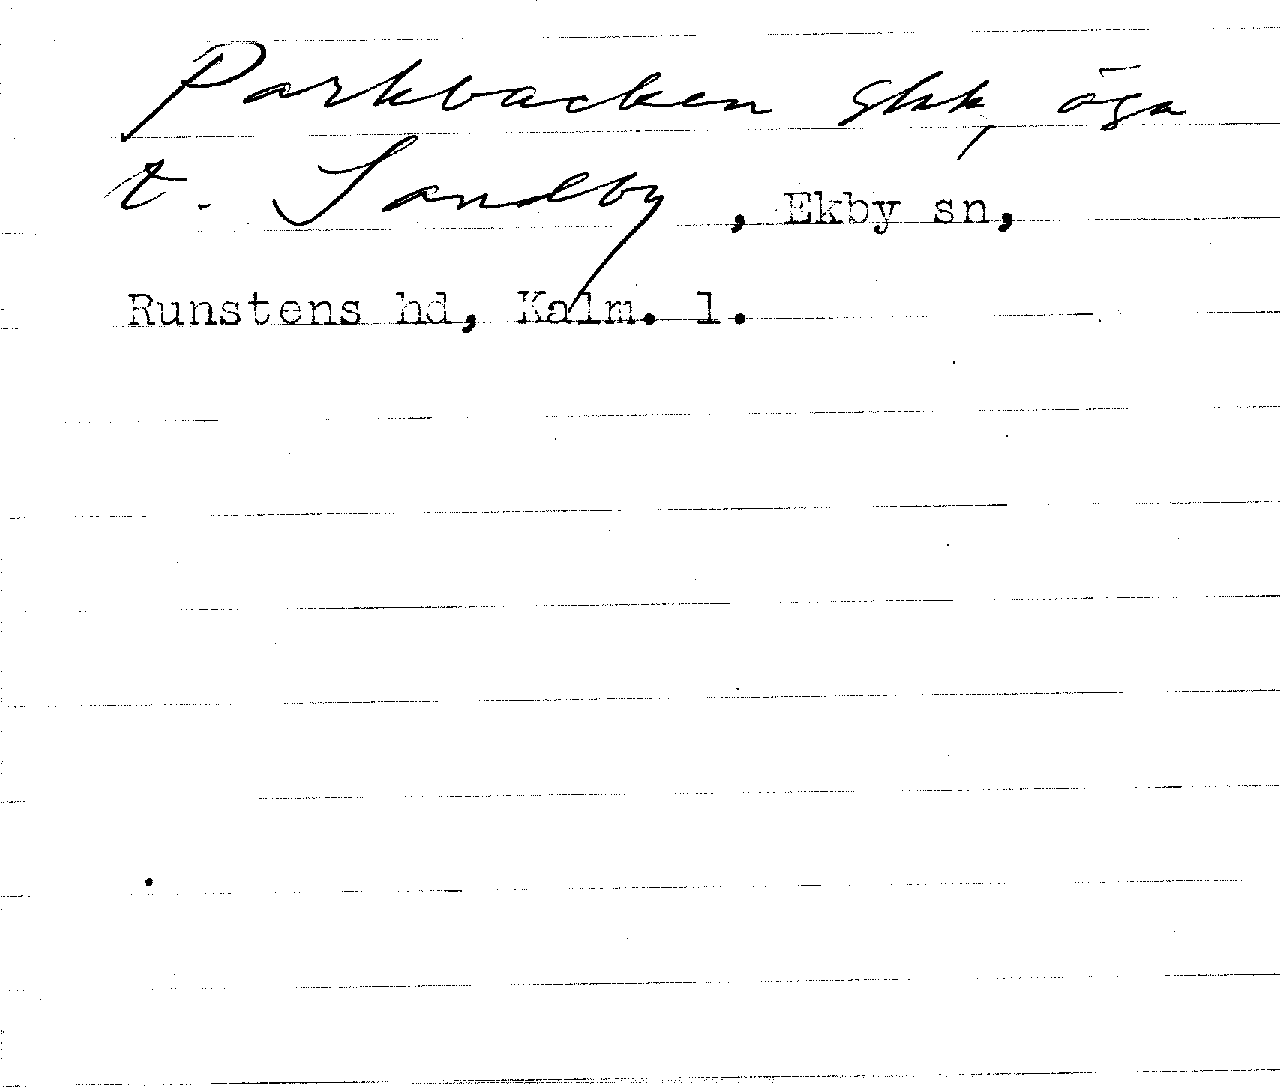 Parkbacken gkk, äga
t. Sandby, Ekby sn,
Runstens hd, Kalm. l.